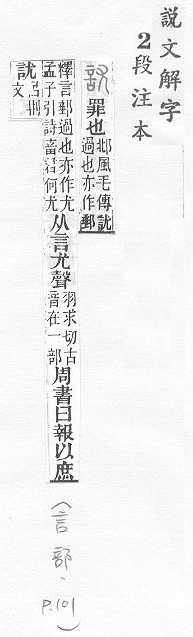 說文解字
2段注本
訧 罪也 邶風毛傳訧過也亦作郵
釋言郵過也亦作尤孟子引詩畜君何尤 从言尤聲 羽求切古音在一部 周書曰報以庶
訧 呂刑文
(言部、P.101)